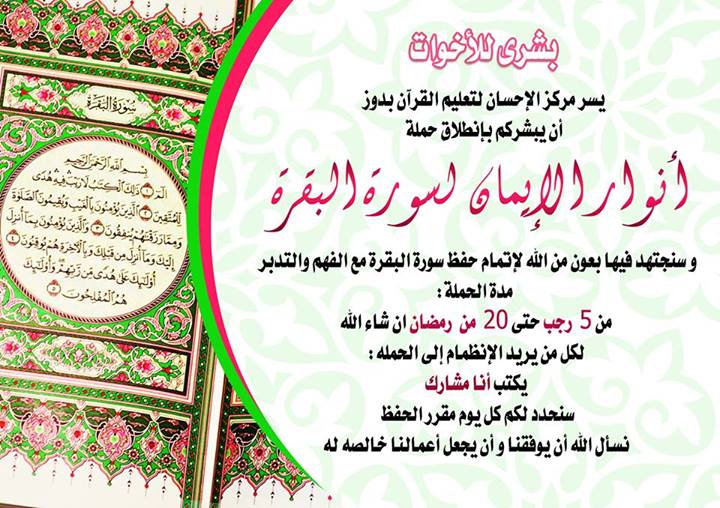 بشرى للأخوات
يسر مركز الإحسان لتعليم القرآن بدوز
أن يبشركم بإنطلاق حملة
أنوار الإيمان لسورة البقرة
و سنجتهد فيها بعون من الله لإتمام حفظ سورة البقرة مع الفهم والتدبر
مدة الحملة :
من 5 رجب حتى 20 من رمضان ان شاء الله
لكل من يريد الإنظمام إلى الحمله :
يكتب أنا مشارك
سنحدد لكم كل يوم مقرر الحفظ
نسأل الله أن يوفقنا و أن يجعل أعمالنا خالصه له
سورة البقرة
بسم الله الرحمن الرحيم
الم ١ ذلك الكتب لا ريب فيه هدى
للمتقين ٢ الذين يؤمنون بالغيب ويقيمون الصلوة
ومما رزقنهم ينفقون ٣ والذين يؤمنون بما أنزل
إليك وما أنزل من قبلك وبالأخرة هم يوقنون ٤
أولئك على هدى من ربهم وأولئك
هم المفلحون ٥